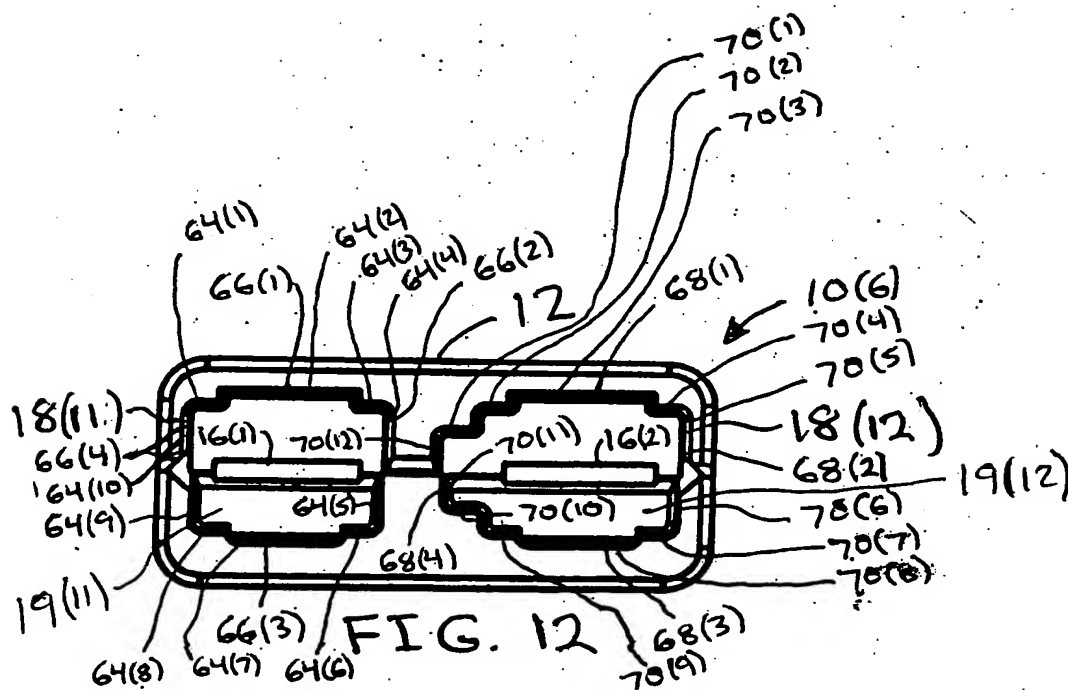 70(1)
70(2)
70(3)
64(1)
64(2)
64(3)
64(4)
66(1)
66(2)
12
68(1)
10(6)
70(4)
70(5)
18(11)
16(1)
70(12)
70(11)
16(2)
18(12)
66(4)
68(2)
64(10)
19(12)
64(9)
64(5)
70(10)
70(6)
68(4)
70(7)
70(8)
19(11)
66(3)
FIG. 12
68(3)
64(8)
64(7)
64(6)
70(9)